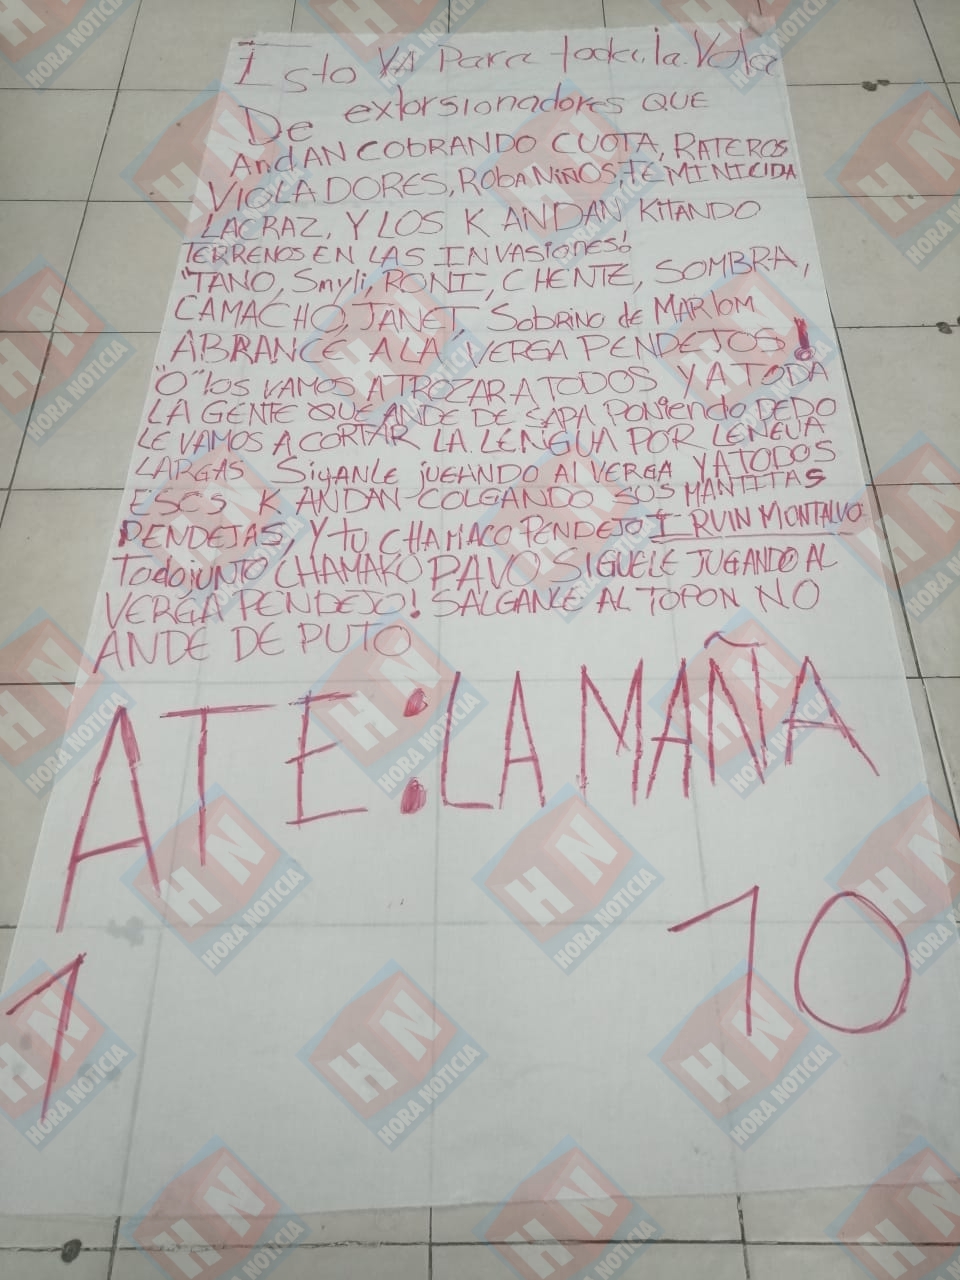 Esto VA Para toda la Vola
De extorsionadores QUE
AndAN COBRANDO CUOTA, RATEROS
VIOLADORES, ROBA NIÑOS, FEMINICIDA
LACRAZ, Y LOS K ANDAN KITANDO
TERRENOS EN LAS INVASIONES!
"TANO, Smyli, RONI, CHENTE, SOMBRA,
CAMACHO, JANET, Sobrino de MARIOM
ABRANCE A LA VERGA PENDEJOS!
"O" los VAMOS A TROZAR A TODOS Y A TODA
LA GENTE QUE ANDE DE SAPA Poniendo DEDO
LE VAMOS A CORTAR LA LENGUA POR LENGUA
LARGAS SIGANLE JUGANDO Al VERGA Y A TODOS
ESOS K ANDAN COLGANDO SUS MANTITAS
PENDEJAS, Y tU CHAMACO PENDEJO IRVIN MONTALVO
Todo junto CHAMAKO PAVO SIGUELE JUGANDO AL
VERGA PENDEJO! SALGANLE AL TOPON NO
ANDE DE PUTO
ATE: LA MAÑA
1 10
HN
HORA NOTICIA